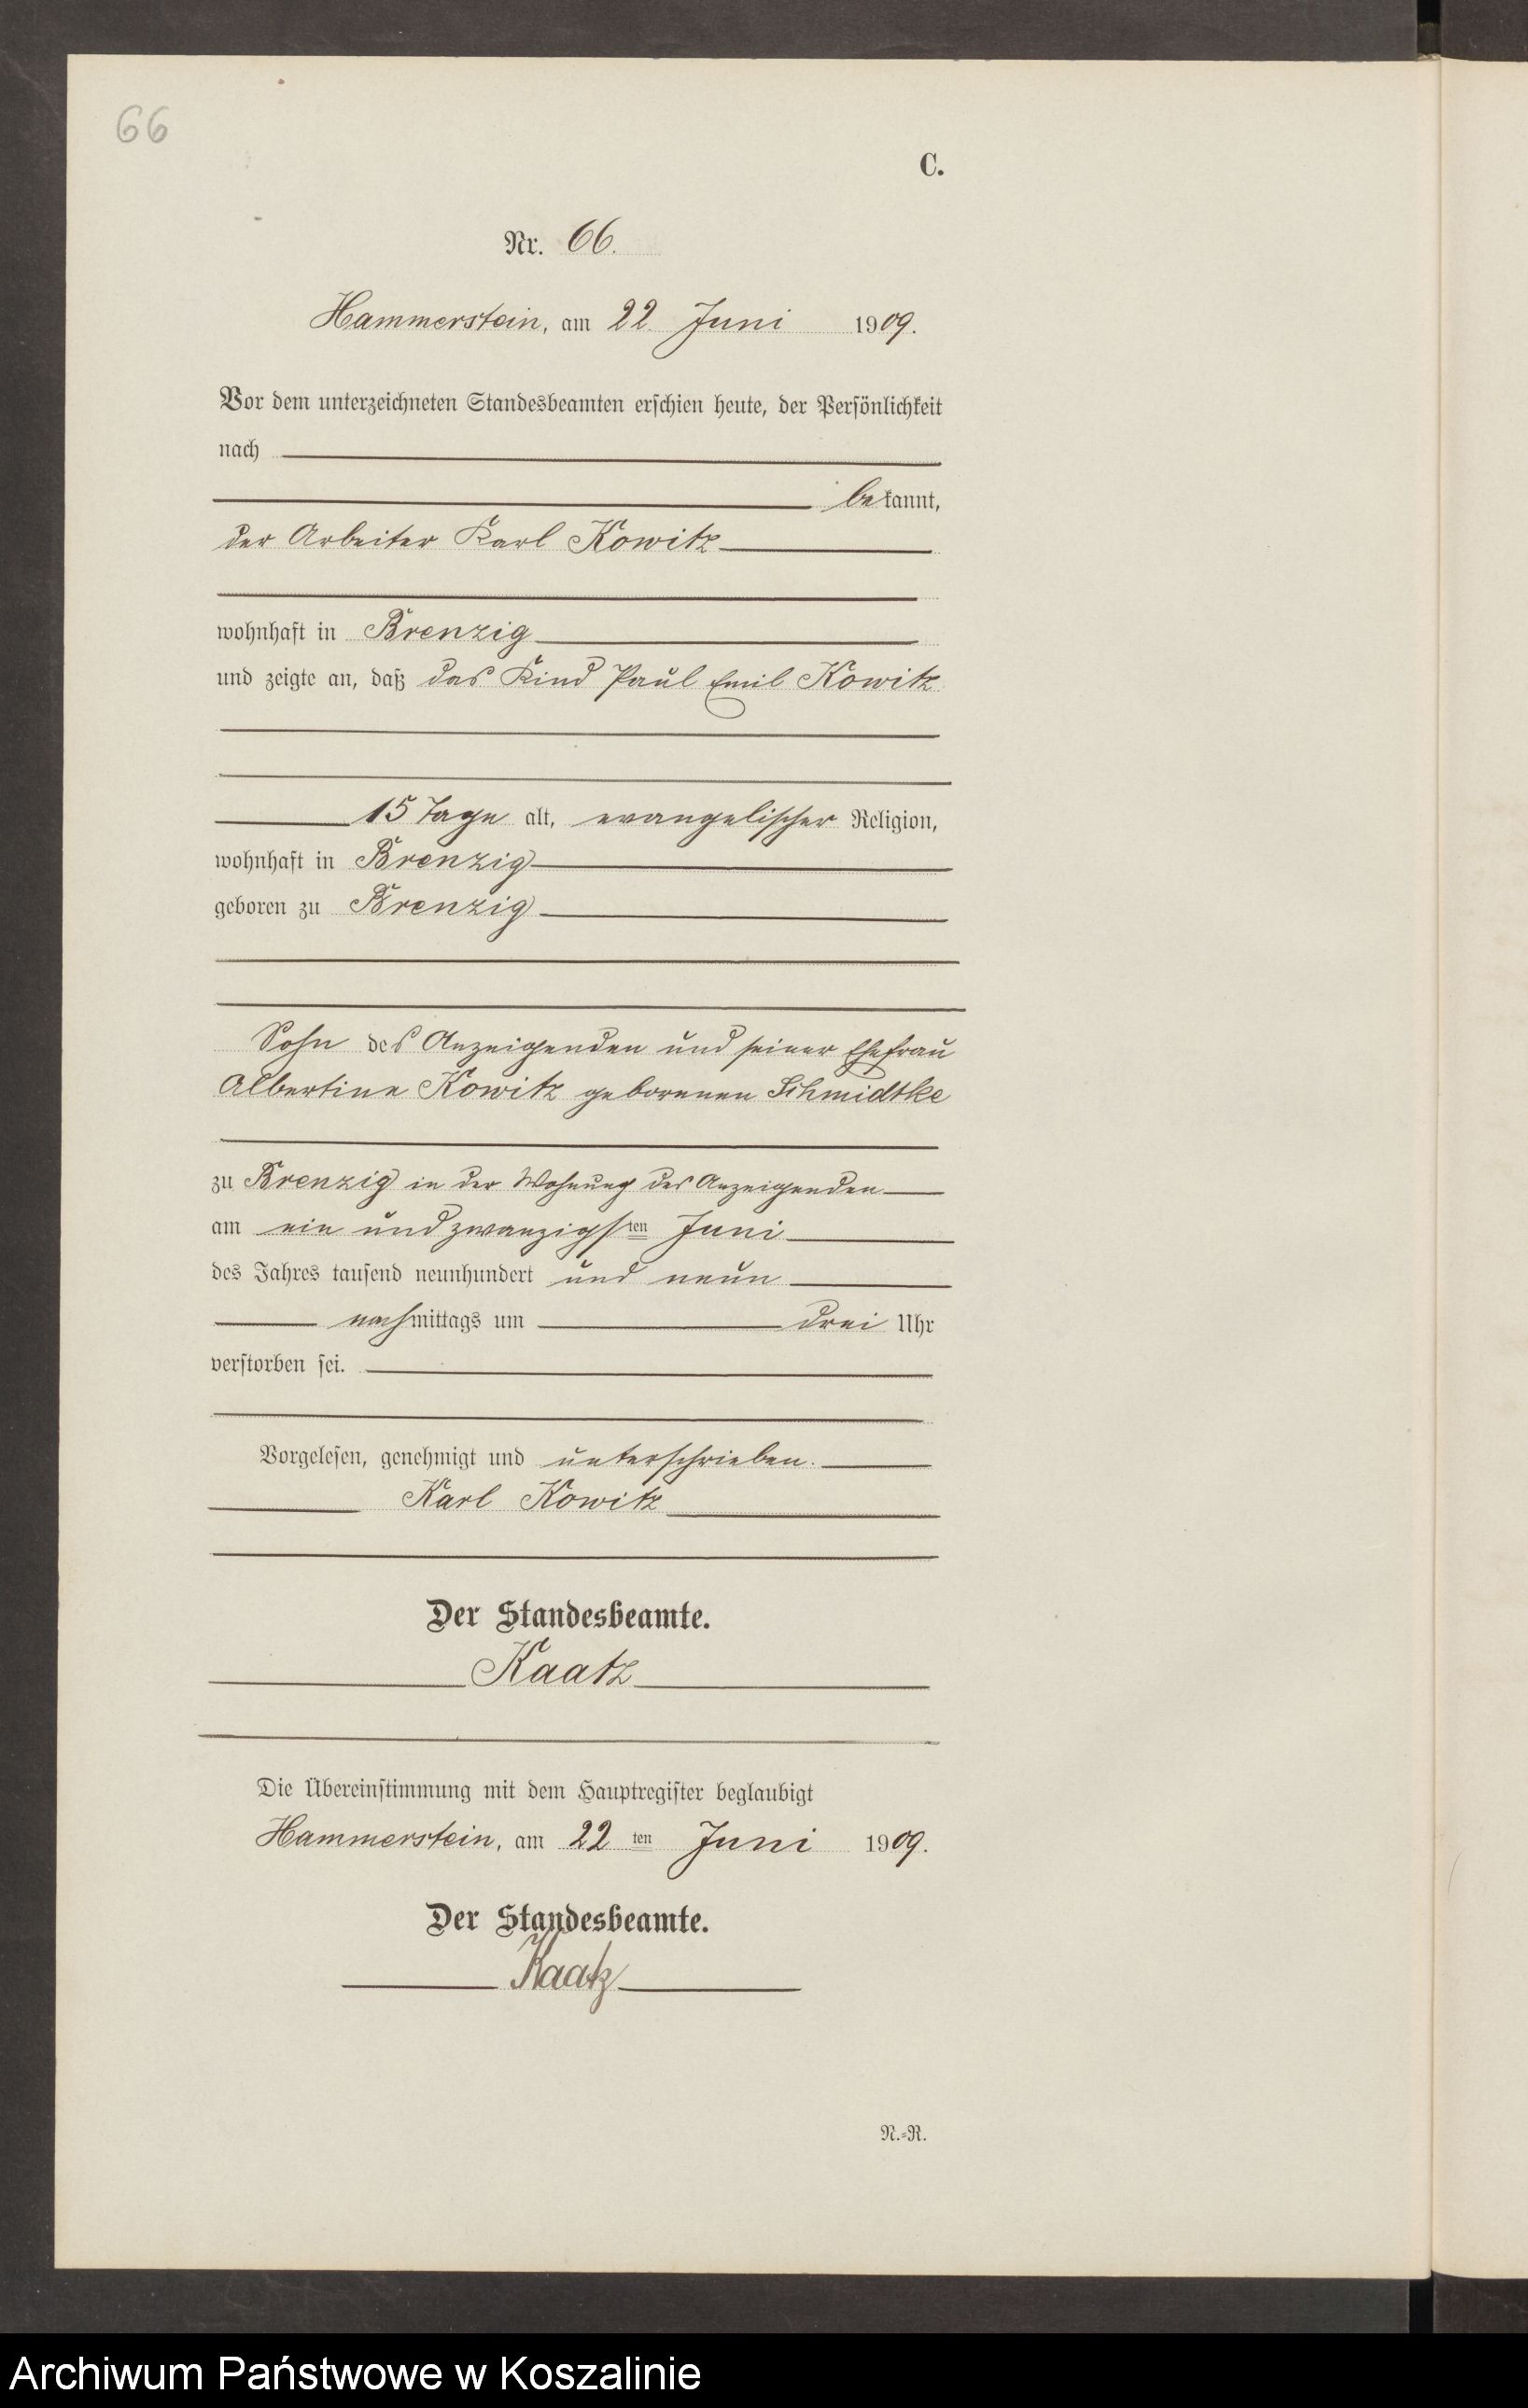 66
C.
Nr. 66.
Hammerstein, am 22. Juni 1909.
Vor dem unterzeichneten Standesbeamten erschien heute, der Persönlichkeit
nach
bekannt,
der Arbeiter Karl Kowitz
wohnhaft in Brenzig
und zeigte an, daß das Kind Paul Emil Kowitz
15 Tage alt, evangelischer Religion,
wohnhaft in Brenzig
geboren zu Brenzig
Sohn des Anzeigenden und seiner Ehefrau
Albertine Kowitz geborenen Schmidtke
zu Brenzig in der Wohnung des Anzeigenden
am ein und zwanzigsten Juni
des Jahres tausend neunhundert und neun
nachmittags um drei Uhr
verstorben sei.
Vorgelesen, genehmigt und unterschrieben.
Karl Kowitz
Der Standesbeamte.
Kaatz
Die Übereinstimmung mit dem Hauptregister beglaubigt
Hammerstein, am 22 ten Juni 1909.
Der Standesbeamte.
Kaatz
N.-R.
Archiwum Państwowe w Koszalinie